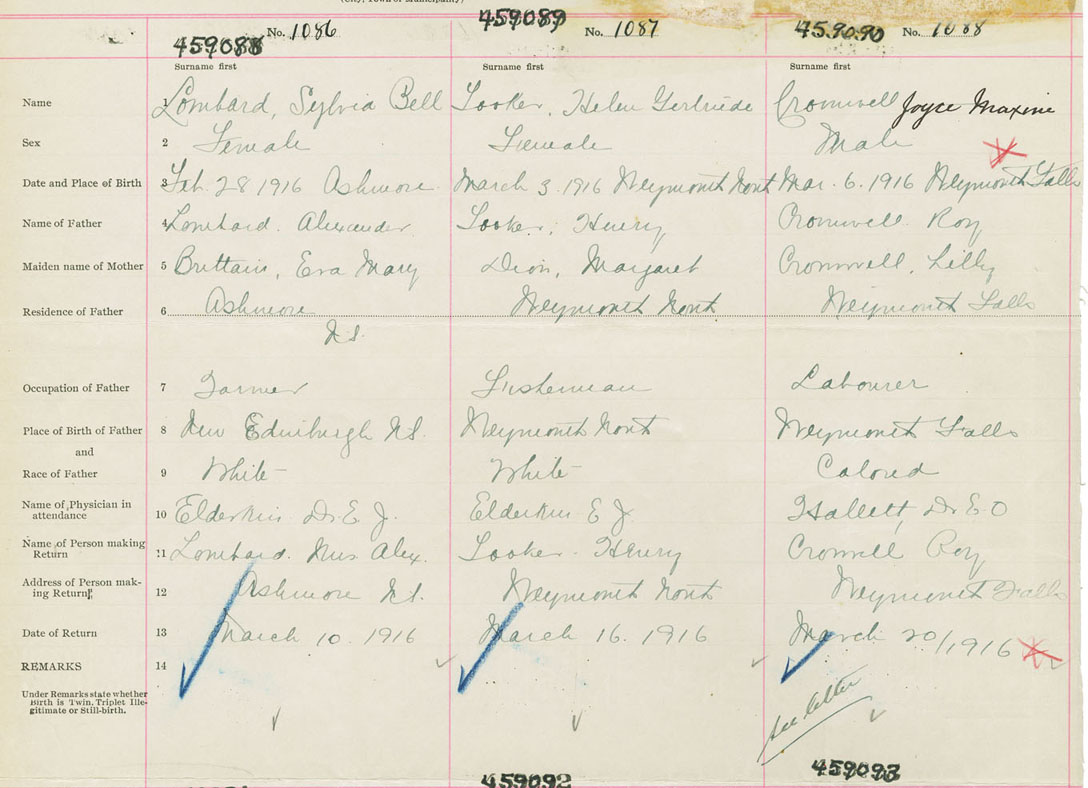 (City, Town or Municipality)
459088 No. 1086 459089 No. 1087 459090 No. 1088
Surname first Surname first Surname first
Name 1 Lombard, Sylvia Bell Looker, Helen Gertrude Cromwell Joyce Maxine
Sex 2 Female Female Male
Date and Place of Birth 3 Feb. 28 1916 Ashmore March 3. 1916 Weymouth North Mar. 6. 1916 Weymouth Falls
Name of Father 4 Lombard. Alexander Looker, Henry Cromwell Roy
Maiden name of Mother 5 Brittain, Eva Mary Dion, Margaret Cromwell, Lilly
Residence of Father 6 Ashmore Weymouth North Weymouth Falls
N.S.
Occupation of Father 7 Farmer Fisherman Labourer
Place of Birth of Father 8 New Edinburgh N.S. Weymouth North Weymouth Falls
and
Race of Father 9 White White Colored
Name of Physician in
attendance 10 Elderkin Dr. E. J. Elderkin E J. Hallett, Dr E. O
Name of Person making
Return 11 Lombard. Mrs Alex. Looker. Henry Cromwell Roy
Address of Person mak-
ing Return 12 Ashmore N.S. Weymouth North Weymouth Falls
Date of Return 13 March 10. 1916 March 16. 1916 March 20/1916
REMARKS 14
Under Remarks state whether
Birth is Twin, Triplet Ille-
gitimate or Still-birth.
see letter
459092 459093